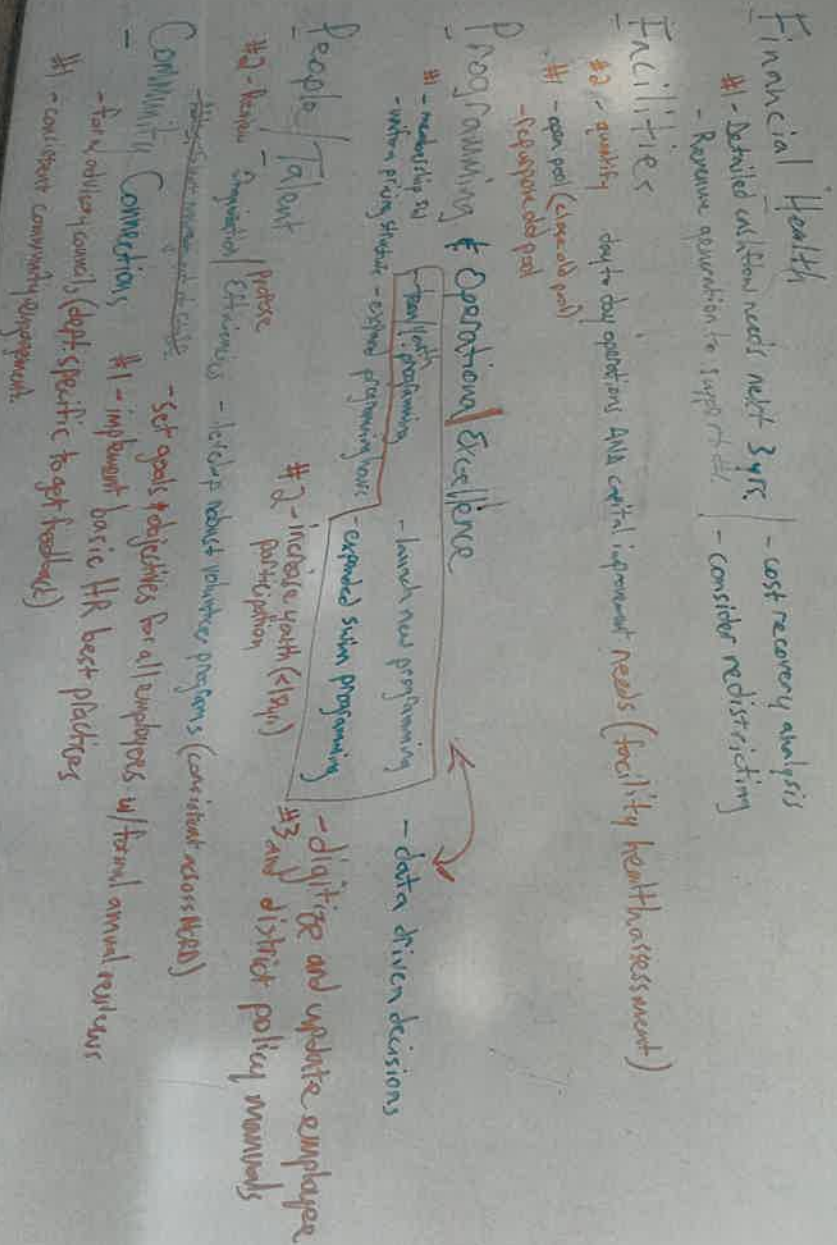 Financial Health
#1 - Detailed cashflow needs next 3 yrs - cost recovery analysis
- Revenue generation to support - consider redistricting
Facilities
#2 - quantify day to day operations AND capital improvement needs (facility health assessment)
#1 - open pool (close old pool)
- Repurpose old pool
Programming & Operational Excellence
#1 - membership - teen/youth programming - launch new programming - data driven decisions
- uniform pricing structure - expand programming hours - expanded swim programming
#2 - increase youth (<18yrs) participation
#3 - digitize and update employee and district policy manuals
People/Talent
#2 - Review organization/ efficiencies - develop robust volunteer programs (consistent across
propose
- set goals & objectives for all employees w/ formal annual reviews
#1 - implement basic HR best practices
Community Connections
- Form advisory councils (dept. specific to get feedback)
#1 - consistent community engagement